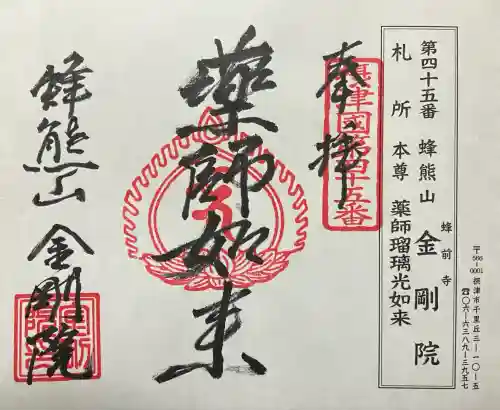 〒566-0001 摂津市千里丘三-一〇-五
☎〇六-六三八九-三九五七
第四十五番 蜂熊山 金剛院
蜂前寺
札所本尊 薬師瑠璃光如来
奉拝
摂津國第四十五番
薬師如来
蜂熊山 金剛院